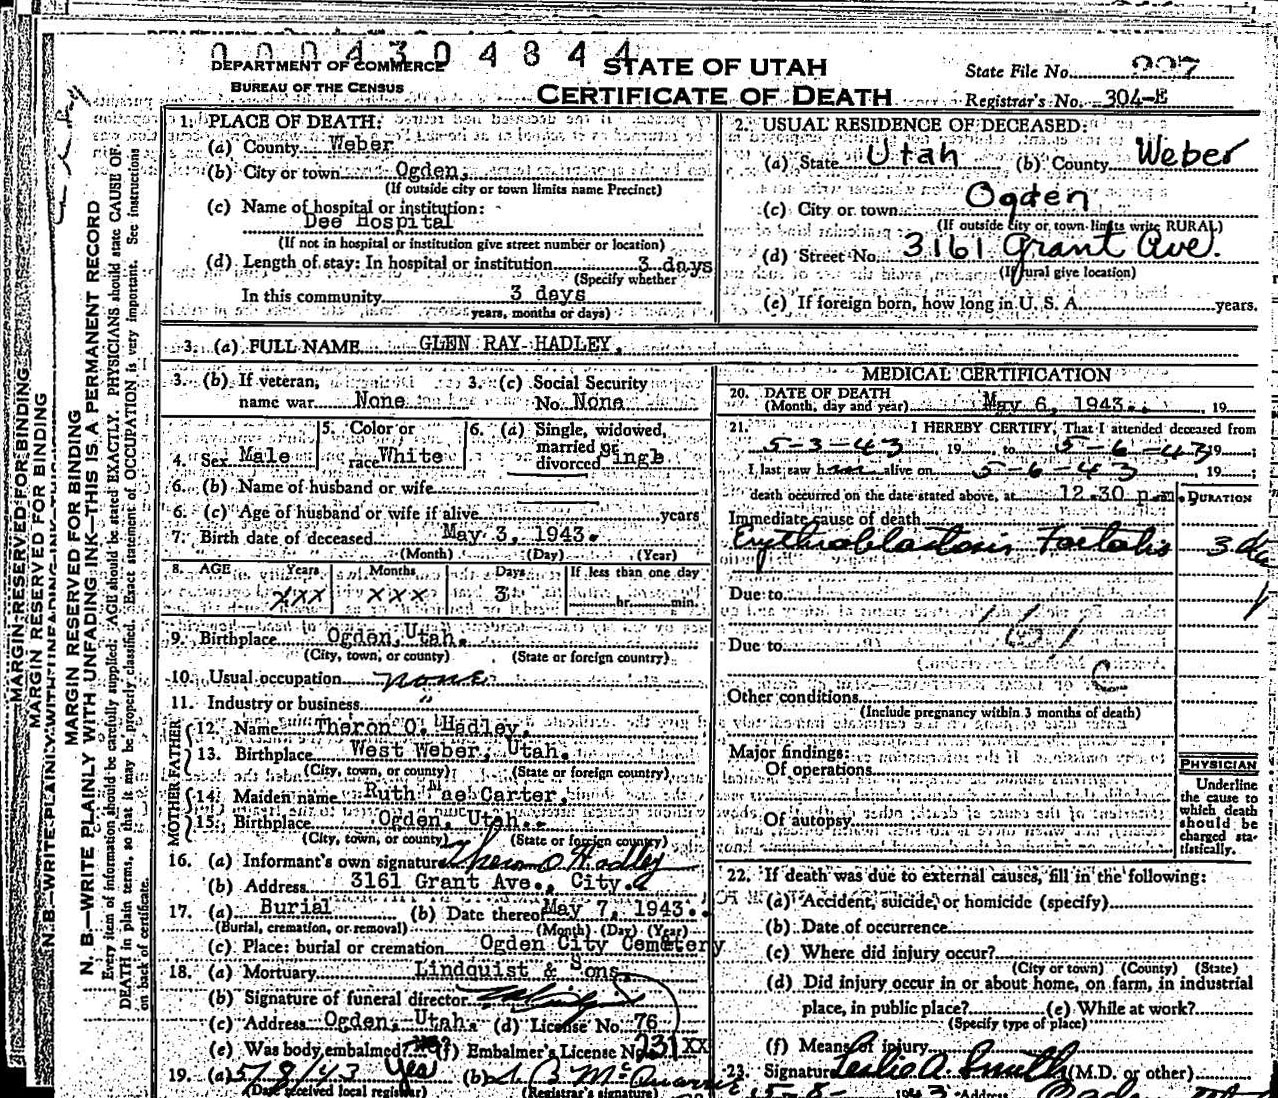 0 0 0 4 3 0 4 8 4 4
DEPARTMENT OF COMMERCE
BUREAU OF THE CENSUS
STATE OF UTAH
CERTIFICATE OF DEATH
State File No.
Registrar's No. 304-E
1. PLACE OF DEATH:
(a) County Weber
(b) City or town Ogden,
(If outside city or town limits name Precinct)
(c) Name of hospital or institution:
Dee Hospital
(If not in hospital or institution give street number or location)
(d) Length of stay: In hospital or institution 3 days
(Specify whether
In this community 3 days
years, months or days)
2. USUAL RESIDENCE OF DECEASED:
(a) State Utah (b) County Weber
(c) City or town Ogden
(If outside city or town limits write RURAL)
(d) Street No. 3161 Grant Ave.
(If rural give location)
(e) If foreign born, how long in U. S. A. years.
3. (a) FULL NAME GLEN RAY HADLEY,
3. (b) If veteran, name war None
3. (c) Social Security No. None
4. Sex Male
5. Color or race White
6. (a) Single, widowed, married or divorced
6. (b) Name of husband or wife
6. (c) Age of husband or wife if alive years
7. Birth date of deceased May 3, 1943.
(Month) (Day) (Year)
8. AGE Years Months Days If less than one day
XXX XXX 3 hr. min.
9. Birthplace Ogden, Utah.
(City, town, or county) (State or foreign country)
10. Usual occupation none
11. Industry or business "
FATHER
12. Name Theron O. Hadley,
13. Birthplace West Weber, Utah.
(City, town, or county) (State or foreign country)
MOTHER
14. Maiden name Ruth Mae Carter,
15. Birthplace Ogden, Utah.
(City, town, or county) (State or foreign country)
16. (a) Informant's own signature Theron O Hadley
(b) Address 3161 Grant Ave., City.
17. (a) Burial (b) Date thereof May 7, 1943.
(Burial, cremation, or removal) (Month) (Day) (Year)
(c) Place: burial or cremation Ogden City Cemetery
18. (a) Mortuary Lindquist & Sons,
(b) Signature of funeral director
(c) Address Ogden, Utah. (d) License No. 76
(e) Was body embalmed? Yes (f) Embalmer's License No. 231 XX
19. (a) 5/8/43 (b)
(Date received local registrar) (Registrar's signature)
MEDICAL CERTIFICATION
20. DATE OF DEATH
(Month, day and year) May 6, 1943. , 19
21. I HEREBY CERTIFY, That I attended deceased from
5-3-43 19 to 5-6-43 19 ;
I last saw him alive on 5-6-43 19 ;
death occurred on the date stated above, at 12.30 p.m.
DURATION
Immediate cause of death
Erythroblastosis Foetalis 3 da
Due to
Due to
161
c
Other conditions
(Include pregnancy within 3 months of death)
Major findings:
Of operations
Of autopsy
PHYSICIAN
Underline
the cause to
which death
should be
charged sta-
tistically.
22. If death was due to external causes, fill in the following:
(a) Accident, suicide, or homicide (specify)
(b) Date of occurrence
(c) Where did injury occur?
(City or town) (County) (State)
(d) Did injury occur in or about home, on farm, in industrial
place, in public place? (e) While at work?
(Specify type of place)
(f) Means of injury
23. Signature Leslie A Smith (M.D. or other)
5-8- 1943 Address
MARGIN RESERVED FOR BINDING
MARGIN RESERVED FOR BINDING
MARGIN RESERVED FOR BINDING
N. B.—WRITE PLAINLY WITH UNFADING INK—THIS IS A PERMANENT RECORD
Every item of information should be carefully supplied. AGE should be stated EXACTLY. PHYSICIANS should state CAUSE OF
DEATH in plain terms, so that it may be properly classified. Exact statement of OCCUPATION is very important. See instructions
on back of certificate.